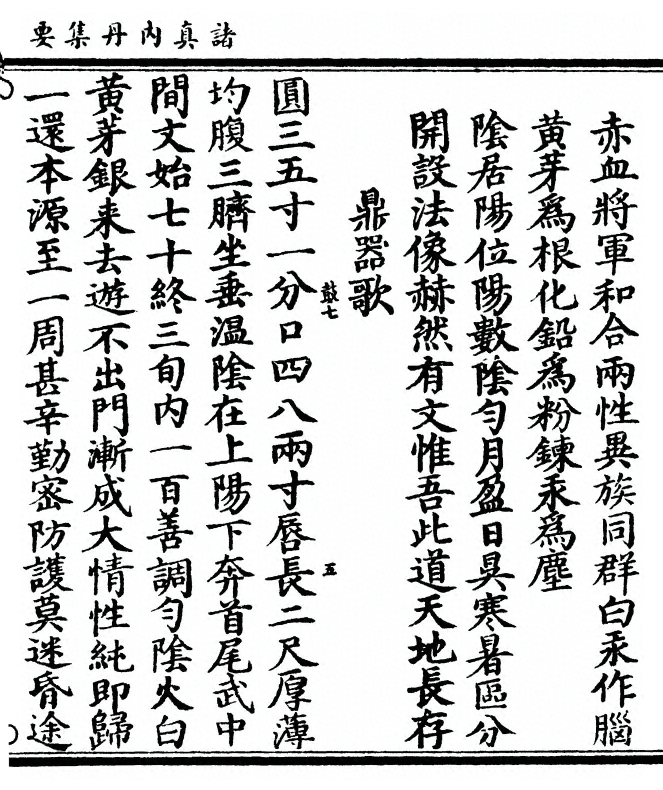 諸真内丹集要
赤血將軍和合兩性異族同群白汞作腦
黃芽爲根化鉛爲粉鍊汞爲塵
陰居陽位陽數陰勻月盈日具寒暑區分
開設法像赫然有文惟吾此道天地長存
鼎器歌
鼓七
五
圓三五寸一分口四八兩寸唇長二尺厚薄
均腹三臍坐垂温陰在上陽下奔首尾武中
間文始七十終三旬内一百善調勻陰火白
黃芽銀来去遊不出門漸成大情性純即歸
一還本源至一周甚辛勤密防護莫迷昏途